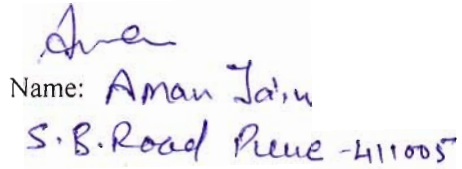 Aman
Name: Aman Jain
S.B. Road Pune -411005